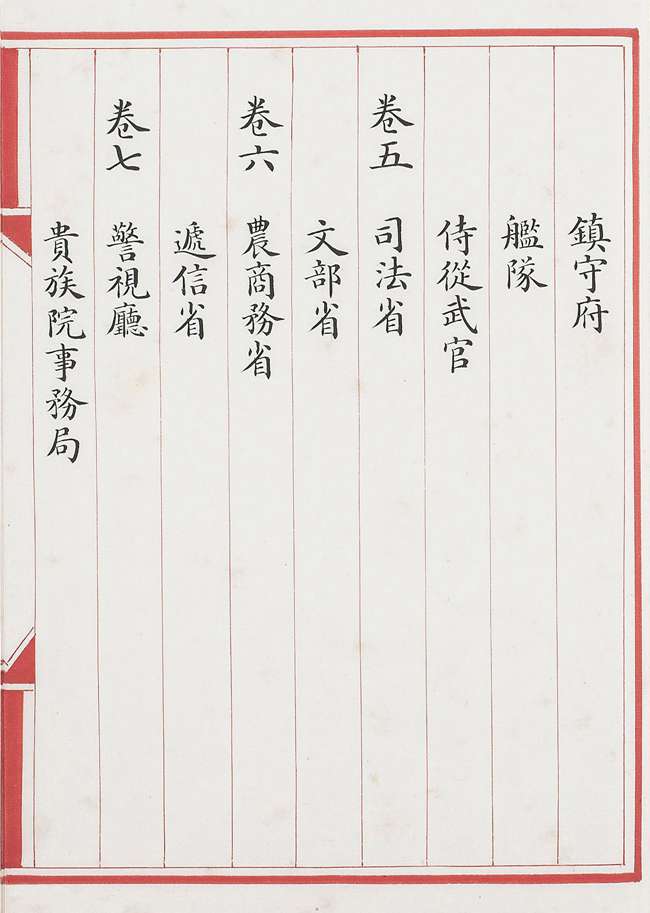 鎮守府
艦隊
侍從武官
卷五 司法省
文部省
卷六 農商務省
遞信省
卷七 警視廳
貴族院事務局